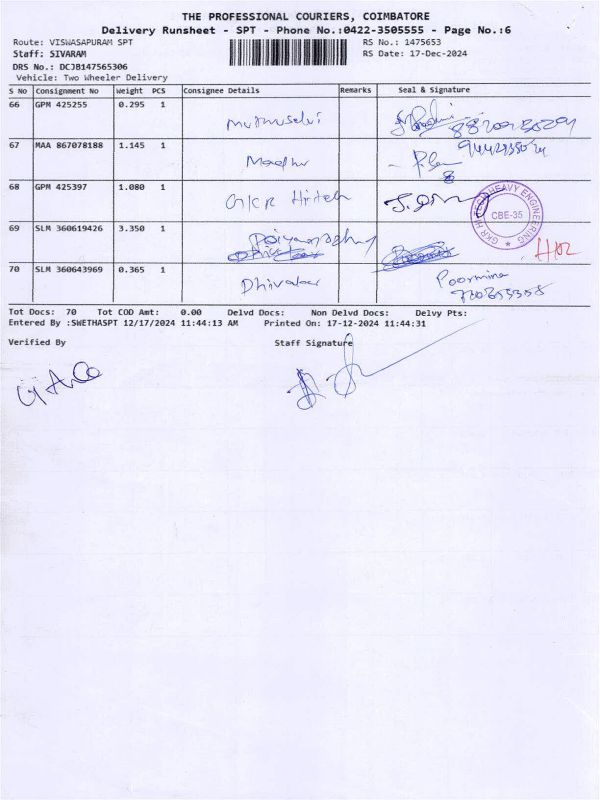 THE PROFESSIONAL COURIERS, COIMBATORE
Delivery Runsheet - SPT - Phone No.:0422-3505555 - Page No.:6
Route: VISWASAPURAM SPT RS No.: 1475653
Staff: SIVARAM RS Date: 17-Dec-2024
DRS No.: DCJB147565306
Vehicle: Two Wheeler Delivery
S No Consignment No Weight PCS Consignee Details Remarks Seal & Signature
66 GPM 425255 0.295 1
67 MAA 867078188 1.145 1 Madhu
68 GPM 425397 1.080 1 GKR Hitech
GKR HI TECH HEAVY ENGINEERING
CBE-35
69 SLM 360619426 3.350 1
70 SLM 360643969 0.365 1 Poornima
Tot Docs: 70 Tot COD Amt: 0.00 Delvd Docs: Non Delvd Docs: Delvy Pts:
Entered By :SWETHASPT 12/17/2024 11:44:13 AM Printed On: 17-12-2024 11:44:31
Verified By Staff Signature